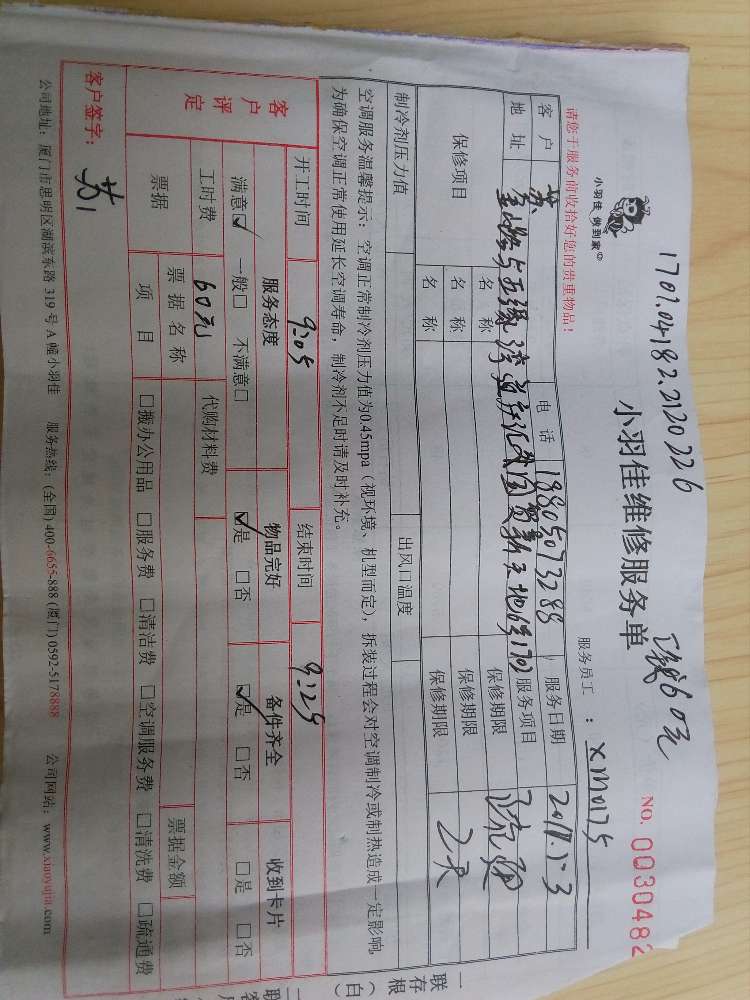 1701.04182.2120226
正钱60元
小羽佳 做到家
小羽佳维修服务单
NO. 0030482
请您于服务前收拾好您的贵重物品!
服务员工 : xm0175
客户 苏 电话 18805073288 服务日期 2017.5.3
地址 服务项目 疏通
保修项目 名称 保修期限
名称 保修期限 2天
名称 保修期限
制冷剂压力值 出风口温度
空调服务温馨提示: 空调正常制冷剂压力值为0.45mpa (视环境、机型而定), 拆装过程会对空调制冷或制热造成一定影响,
为确保空调正常使用延长空调寿命, 制冷剂不足时请及时补充。
开工时间 9:05 结束时间 9:25
客户评定 服务态度 物品完好 备件齐全 收到卡片
满意☑ 一般□ 不满意□ ☑是 □否 ☑是 □否 □是 □否
工时费 60元 代购材料费
票据 票据名称 票据金额
项目 □搬办公用品 □服务费 □清洁费 □空调服务费 □清洗费 □疏通费
客户签字: 苏
公司地址: 厦门市思明区湖滨东路 319 号 A 幢小羽佳 服务热线: (全国) 400-6655-888 (厦门) 0592-5178888 公司网站: www.xiaoyujia.com
一联存根(白)